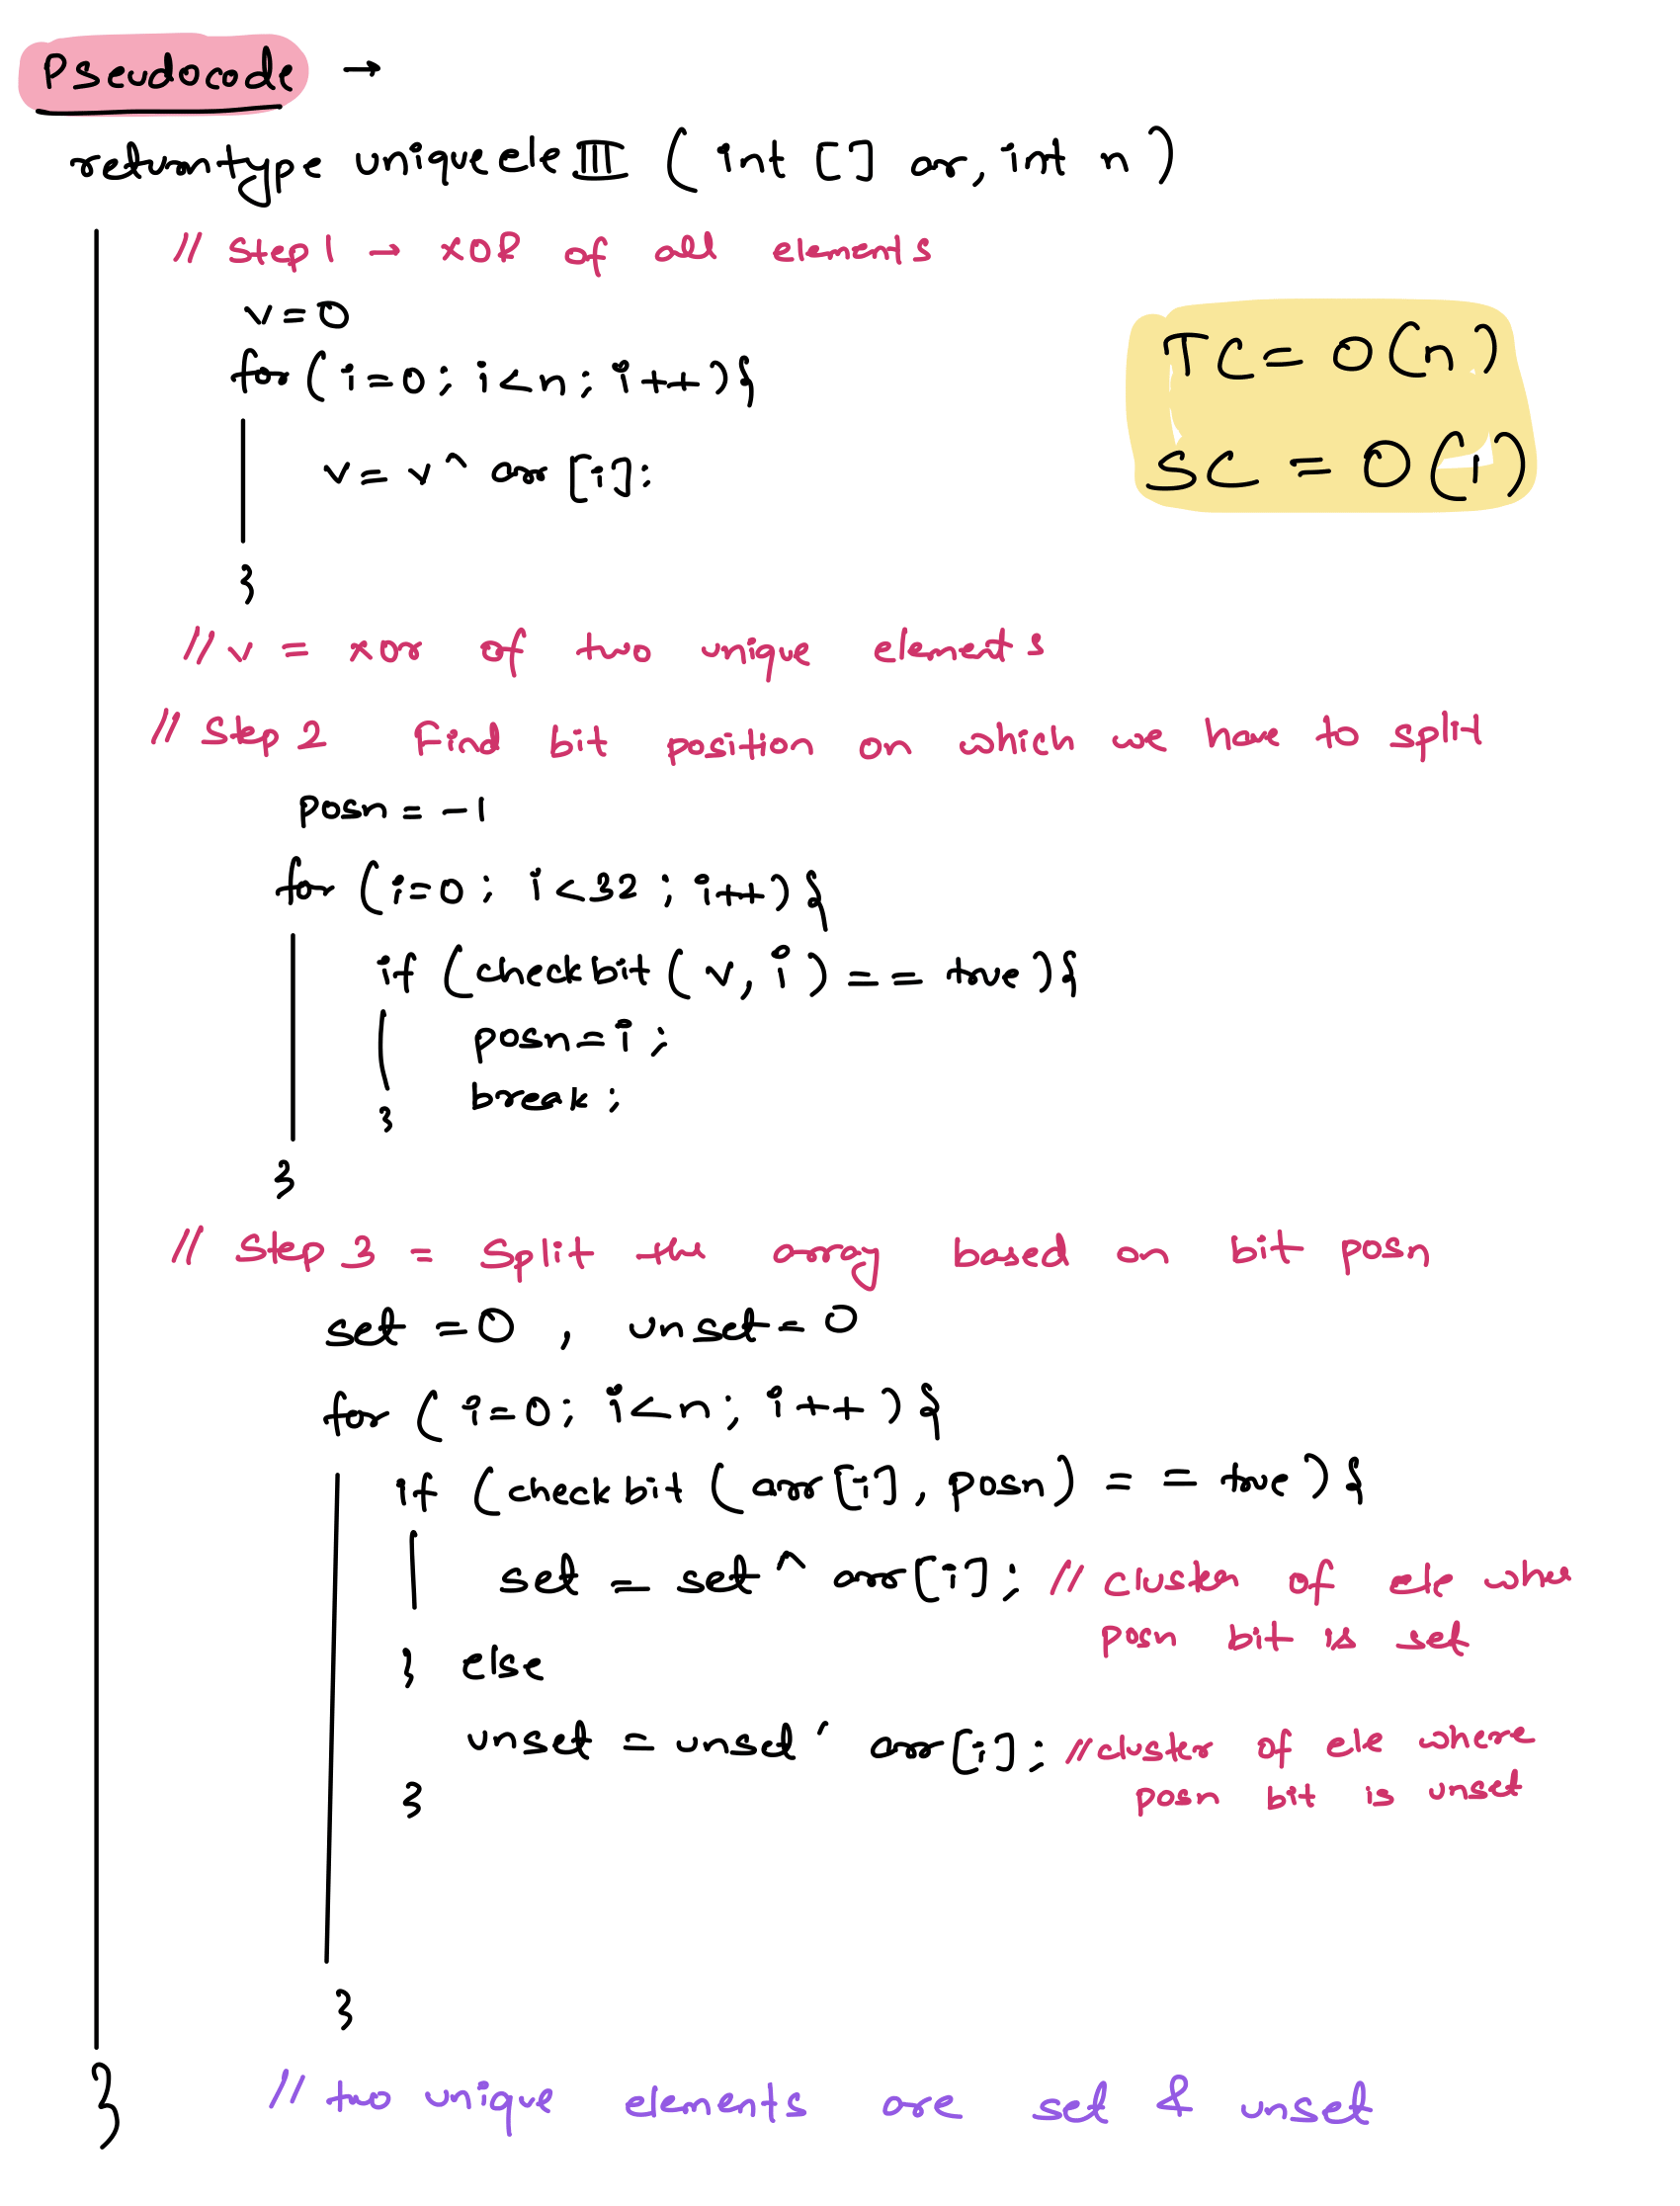 Pseudocode →
returntype uniqueele III ( int [] arr, int n )
// Step1 → XOR of all elements
v=0
for (i=0; i<n; i++){
TC = O(n)
v = v ^ arr [i];
SC = O(1)
}
// v = xor of two unique elements
// Step 2 Find bit position on which we have to split
posn = -1
for (i=0; i<32; i++){
if (checkbit( v, i ) == true ){
posn=i;
break;
}
}
// Step 3 = Split the array based on bit posn
set =0 , unset=0
for ( i=0; i<n; i++ ){
if (checkbit (arr[i], posn) == true ){
set = set ^ arr[i]; // cluster of ele whee
posn bit is set
} else
unset = unset ^ arr[i]; //cluster of ele where
posn bit is unset
}
}
} // two unique elements are set & unset